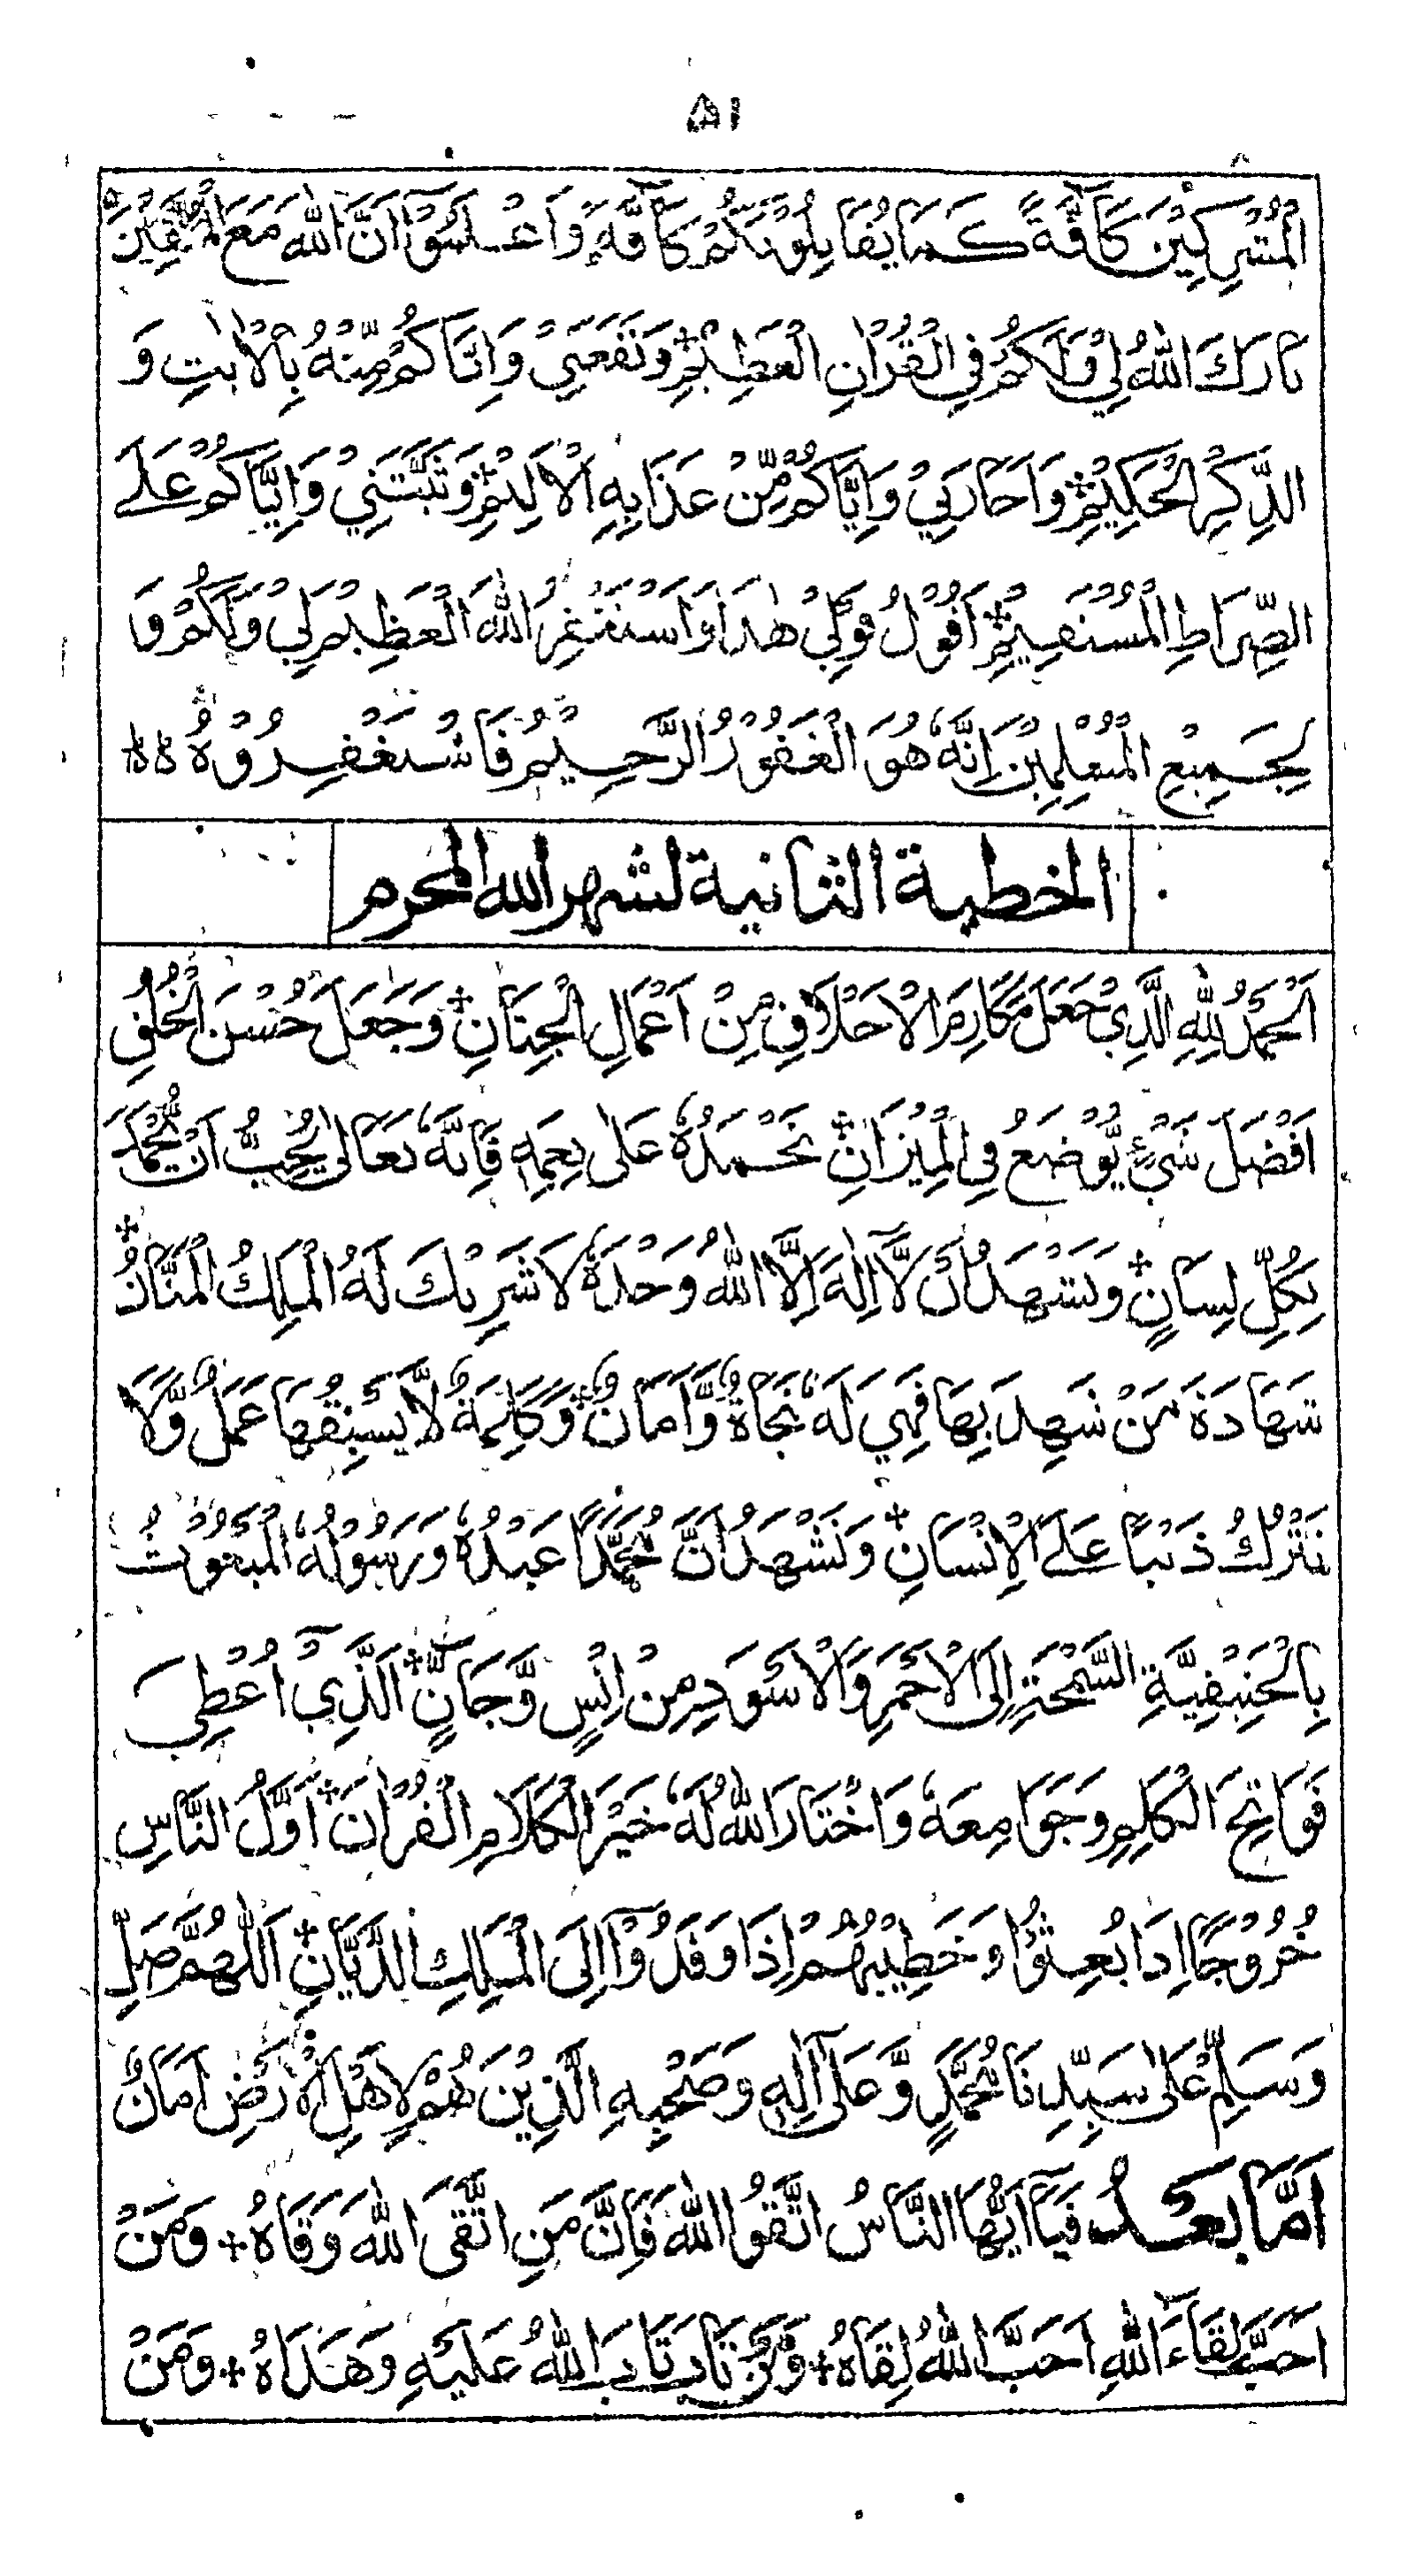 ۵۱
الْمُشْرِكِيْنَ كَآفَّةً كَمَا يُقَاتِلُوْنَكُمْ كَآفَّةً وَّاعْلَمُوْٓا اَنَّ اللهَ مَعَ الْمُتَّقِيْنَ
بَارَكَ اللهُ لِيْ وَلَكُمْ فِي الْقُرْاٰنِ الْعَظِيْمِ + وَنَفَعَنِيْ وَاِيَّاكُمْ مِّنْهُ بِالْاٰيٰتِ وَ
الذِّكْرِ الْحَكِيْمِ + وَاَجَارَنِيْ وَاِيَّاكُمْ مِّنْ عَذَابِهِ الْاَلِيْمِ + وَثَبَّتَنِيْ وَاِيَّاكُمْ عَلَى
الصِّرَاطِ الْمُسْتَقِيْمِ + اَقُوْلُ قَوْلِيْ هٰذَا وَاَسْتَغْفِرُ اللهَ الْعَظِيْمَ لِيْ وَلَكُمْ وَ
لِجَمِيْعِ الْمُسْلِمِيْنَ اِنَّهٗ هُوَ الْغَفُوْرُ الرَّحِيْمُ فَاسْتَغْفِرُوْهُ
الخطبة الثانية لشهر الله المحرم
اَلْحَمْدُ لِلّٰهِ الَّذِيْ جَعَلَ مَكَارِمَ الْاَخْلَاقِ مِنْ اَعْمَالِ الْجِنَانِ + وَجَعَلَ حُسْنَ الْخُلُقِ
اَفْضَلَ شَيْءٍ يُّوْضَعُ فِي الْمِيْزَانِ + نَحْمَدُهٗ عَلٰى نِعَمِهٖ فَاِنَّهٗ تَعَالٰى يُحِبُّ اَنْ يُّحْمَدَ
بِكُلِّ لِسَانٍ + وَنَشْهَدُ اَنْ لَّآ اِلٰهَ اِلَّا اللهُ وَحْدَهٗ لَا شَرِيْكَ لَهُ الْمَلِكُ الْمَنَّانُ +
شَهَادَةً مَنْ شَهِدَ بِهَا فَهِيَ لَهٗ نَجَاةٌ وَّاَمَانٌ + وَكَلِمَةً لَّا يَسْبِقُهَا عَمَلٌ وَّلَا
تَتْرُكُ ذَنْبًا عَلَى الْاِنْسَانِ + وَنَشْهَدُ اَنَّ مُحَمَّدًا عَبْدُهٗ وَرَسُوْلُهُ الْمَبْعُوْثُ
بِالْحَنِيْفِيَّةِ السَّمْحَةِ اِلَى الْاَحْمَرِ وَالْاَسْوَدِ مِنْ اِنْسٍ وَّجَانٍّ + الَّذِيْٓ اُعْطِيَ
فَوَاتِحَ الْكَلِمِ وَجَوَامِعَهٗ وَاخْتَارَ اللهُ لَهٗ خَيْرَ الْكَلَامِ الْقُرْاٰنَ + اَوَّلُ النَّاسِ
خُرُوْجًا اِذَا بُعِثُوْا وَخَطِيْبُهُمْ اِذَا وَفَدُوْٓا اِلَى الْمَلِكِ الدَّيَّانِ + اَللّٰهُمَّ صَلِّ
وَسَلِّمْ عَلٰى سَيِّدِنَا مُحَمَّدٍ وَّعَلٰٓى اٰلِهٖ وَصَحْبِهِ الَّذِيْنَ هُمْ لِاَهْلِ الْاَرْضِ اَمَانٌ
اَمَّا بَعْدُ فَيَآ اَيُّهَا النَّاسُ اتَّقُوا اللهَ فَاِنَّ مَنِ اتَّقَى اللهَ وَقَاهُ + وَمَنْ
اَحَبَّ لِقَآءَ اللهِ اَحَبَّ اللهُ لِقَاهُ + وَمَنْ تَابَ تَابَ اللهُ عَلَيْهِ وَهَدَاهُ + وَمَنْ